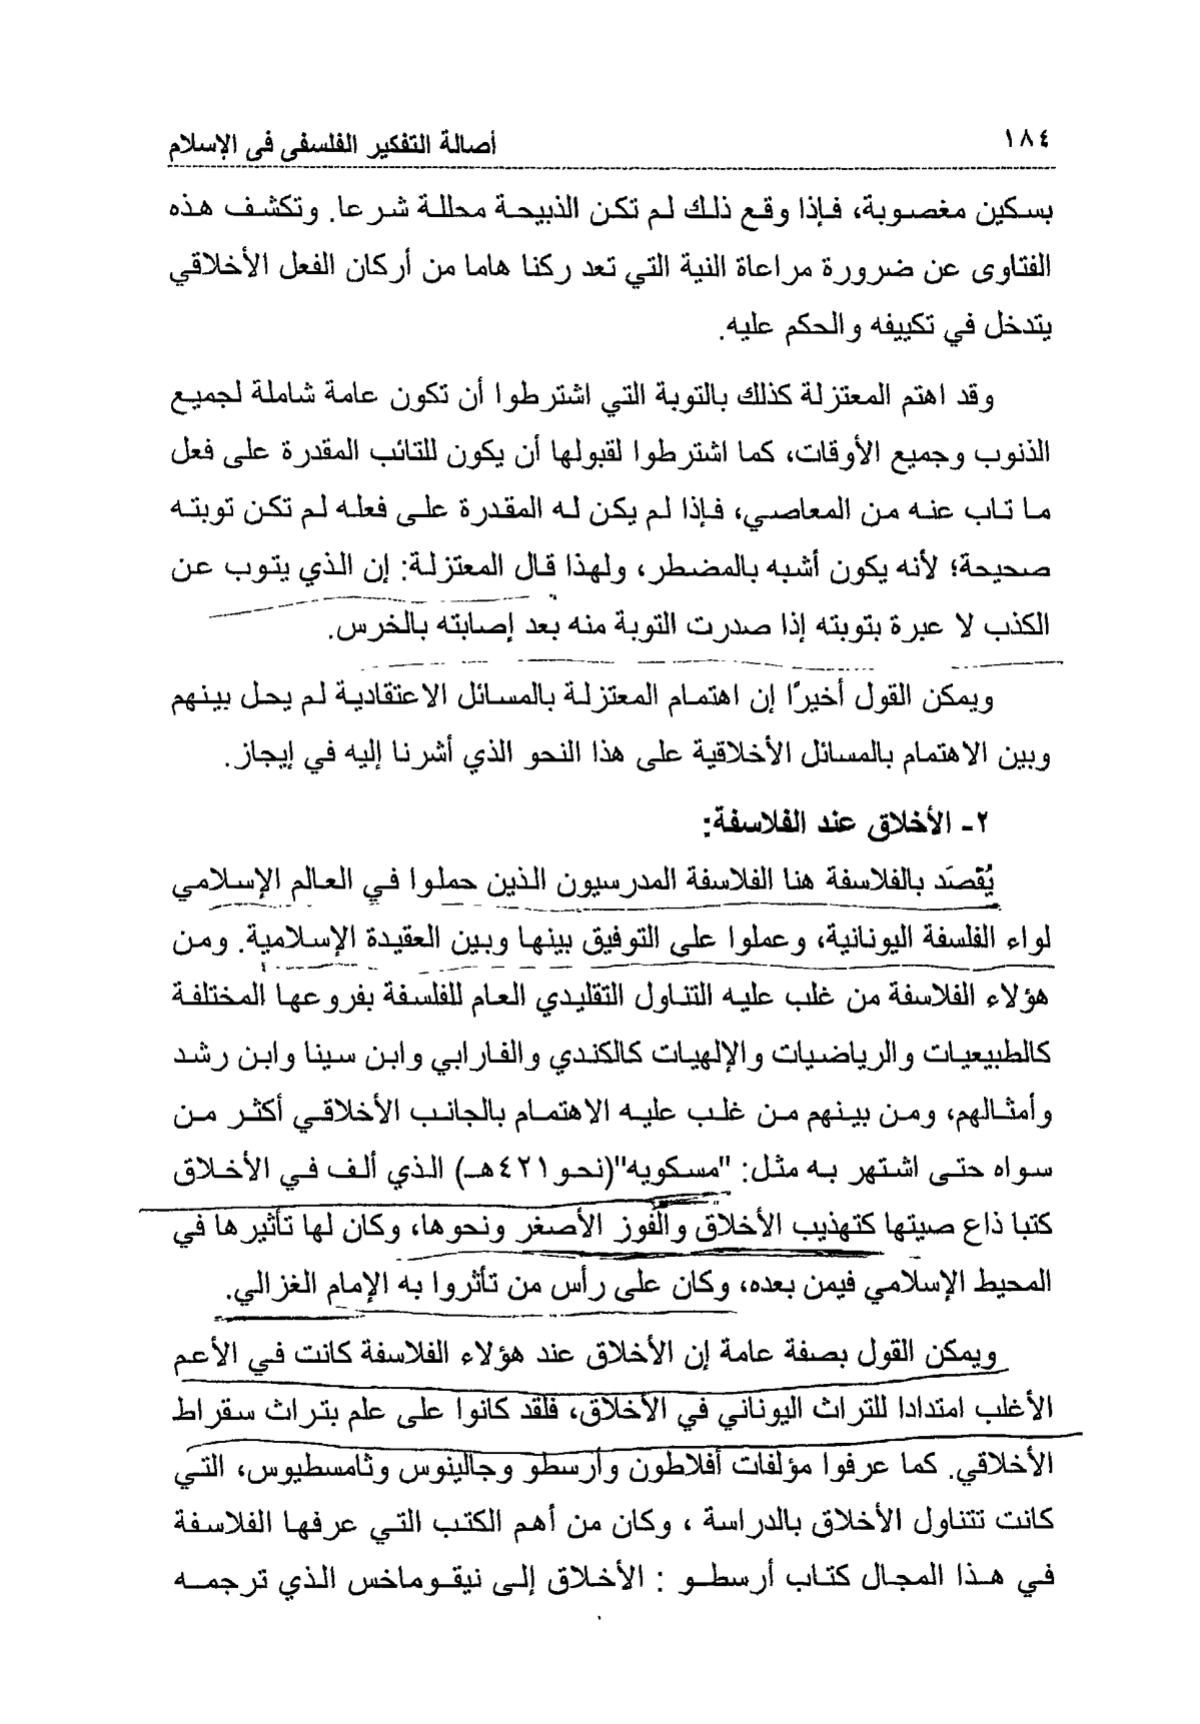 ١٨٤
أصالة التفكير الفلسفى فى الإسلام
بسكين مغصوبة، فإذا وقع ذلك لم تكن الذبيحة محللة شرعا. وتكشف هذه
الفتاوى عن ضرورة مراعاة النية التي تعد ركنا هاما من أركان الفعل الأخلاقي
يتدخل في تكييفه والحكم عليه.
وقد اهتم المعتزلة كذلك بالتوبة التي اشترطوا أن تكون عامة شاملة لجميع
الذنوب وجميع الأوقات، كما اشترطوا لقبولها أن يكون للتائب المقدرة على فعل
ما تاب عنه من المعاصي، فإذا لم يكن له المقدرة على فعله لم تكن توبته
صحيحة؛ لأنه يكون أشبه بالمضطر، ولهذا قال المعتزلة: إن الذي يتوب عن
الكذب لا عبرة بتوبته إذا صدرت التوبة منه بعد إصابته بالخرس.
ويمكن القول أخيرًا إن اهتمام المعتزلة بالمسائل الاعتقادية لم يحل بينهم
وبين الاهتمام بالمسائل الأخلاقية على هذا النحو الذي أشرنا إليه في إيجاز.
٢- الأخلاق عند الفلاسفة:
يُقصَد بالفلاسفة هنا الفلاسفة المدرسيون الذين حملوا في العالم الإسلامي
لواء الفلسفة اليونانية، وعملوا على التوفيق بينها وبين العقيدة الإسلامية. ومن
هؤلاء الفلاسفة من غلب عليه التناول التقليدي العام للفلسفة بفروعها المختلفة
كالطبيعيات والرياضيات والإلهيات كالكندي والفارابي وابن سينا وابن رشد
وأمثالهم، ومن بينهم من غلب عليه الاهتمام بالجانب الأخلاقي أكثر من
سواه حتى اشتهر به مثل: "مسكويه"(نحو ٤٢١هـ) الذي ألف في الأخلاق
كتبا ذاع صيتها كتهذيب الأخلاق والفوز الأصغر ونحوها، وكان لها تأثيرها في
المحيط الإسلامي فيمن بعده، وكان على رأس من تأثروا به الإمام الغزالي.
ويمكن القول بصفة عامة إن الأخلاق عند هؤلاء الفلاسفة كانت في الأعم
الأغلب امتدادا للتراث اليوناني في الأخلاق، فلقد كانوا على علم بتراث سقراط
الأخلاقي. كما عرفوا مؤلفات أفلاطون وأرسطو وجالينوس وثامسطيوس، التي
كانت تتناول الأخلاق بالدراسة ، وكان من أهم الكتب التي عرفها الفلاسفة
في هذا المجال كتاب أرسطو : الأخلاق إلى نيقوماخس الذي ترجمه